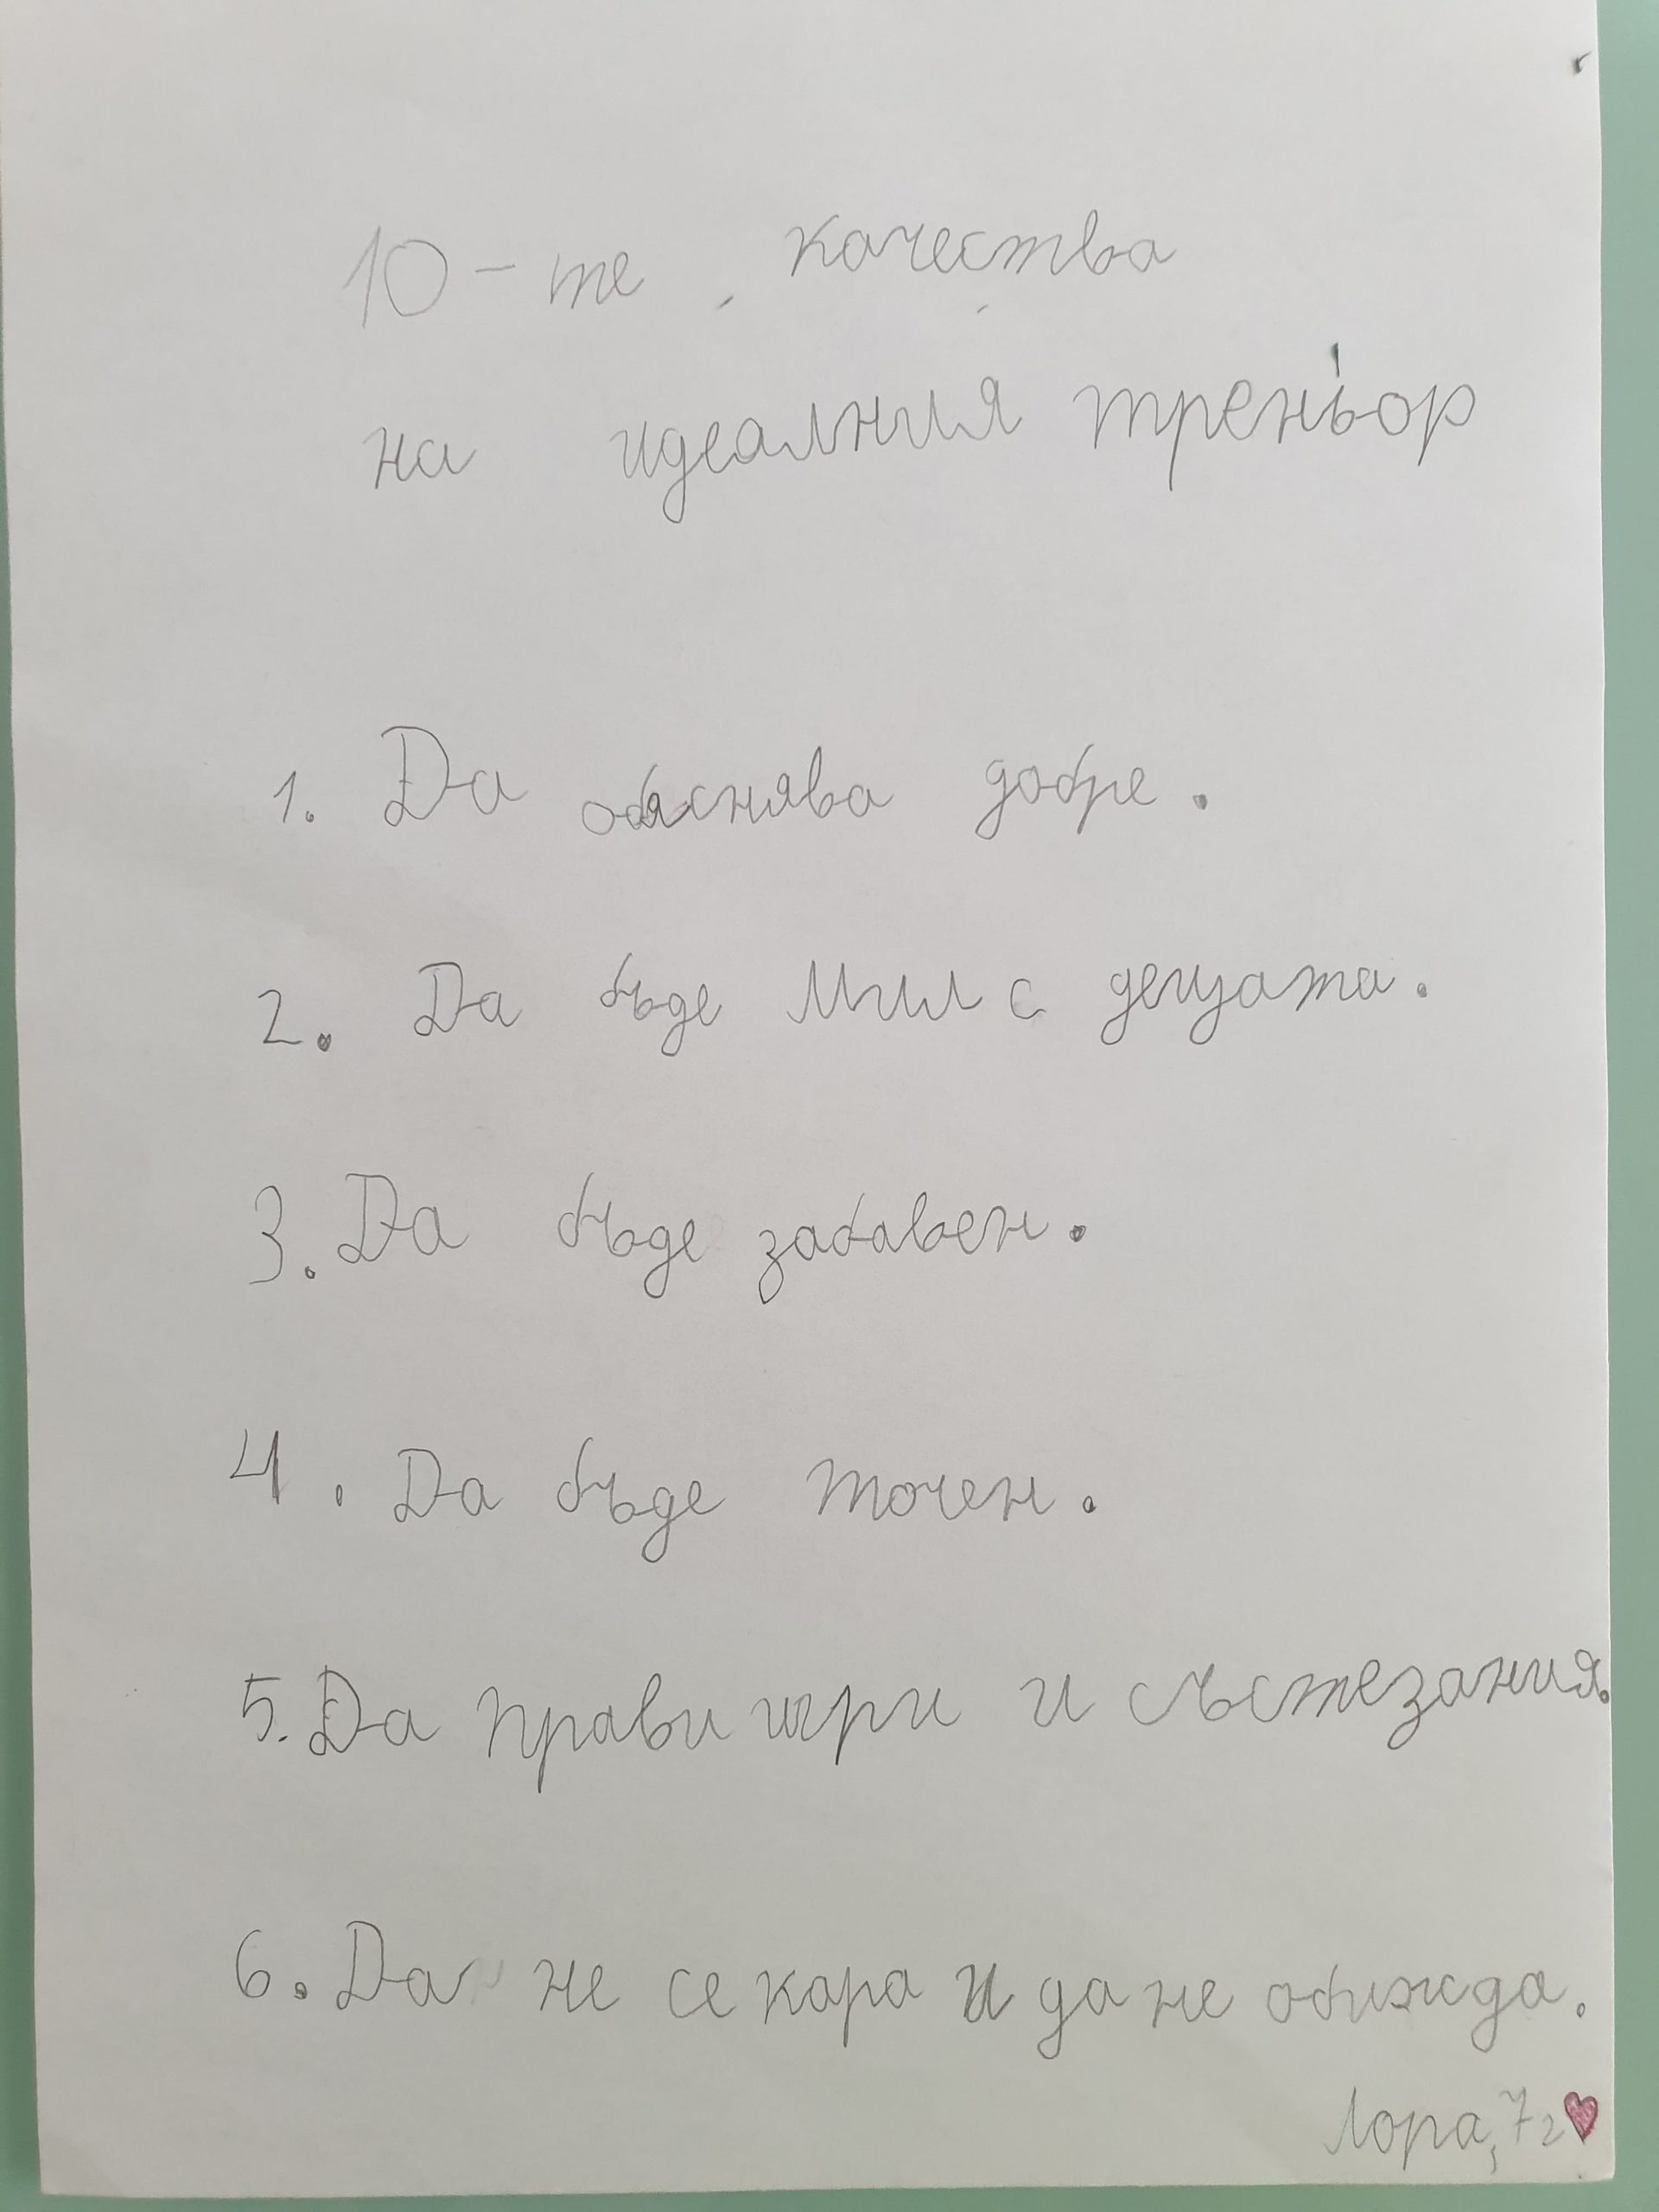 10-те качества
на идеалния треньор
1. Да обяснява добре.
2. Да бъде мил с децата.
3. Да бъде забавен.
4. Да бъде точен.
5. Да прави игри и състезания.
6. Да не се кара и да не обижда.
Лора, 7г